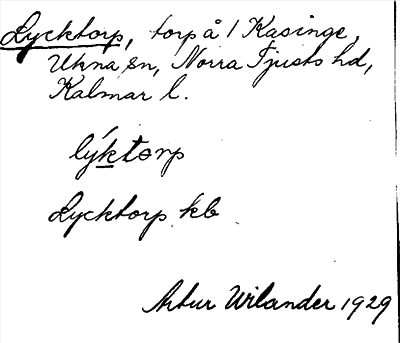 Lycktorp, torp å / Kasinge,
Ukna sn, Norra Tjusts hd,
Kalmar l.
lýktorp
Lycktorp kb
Artur Wilander 1929